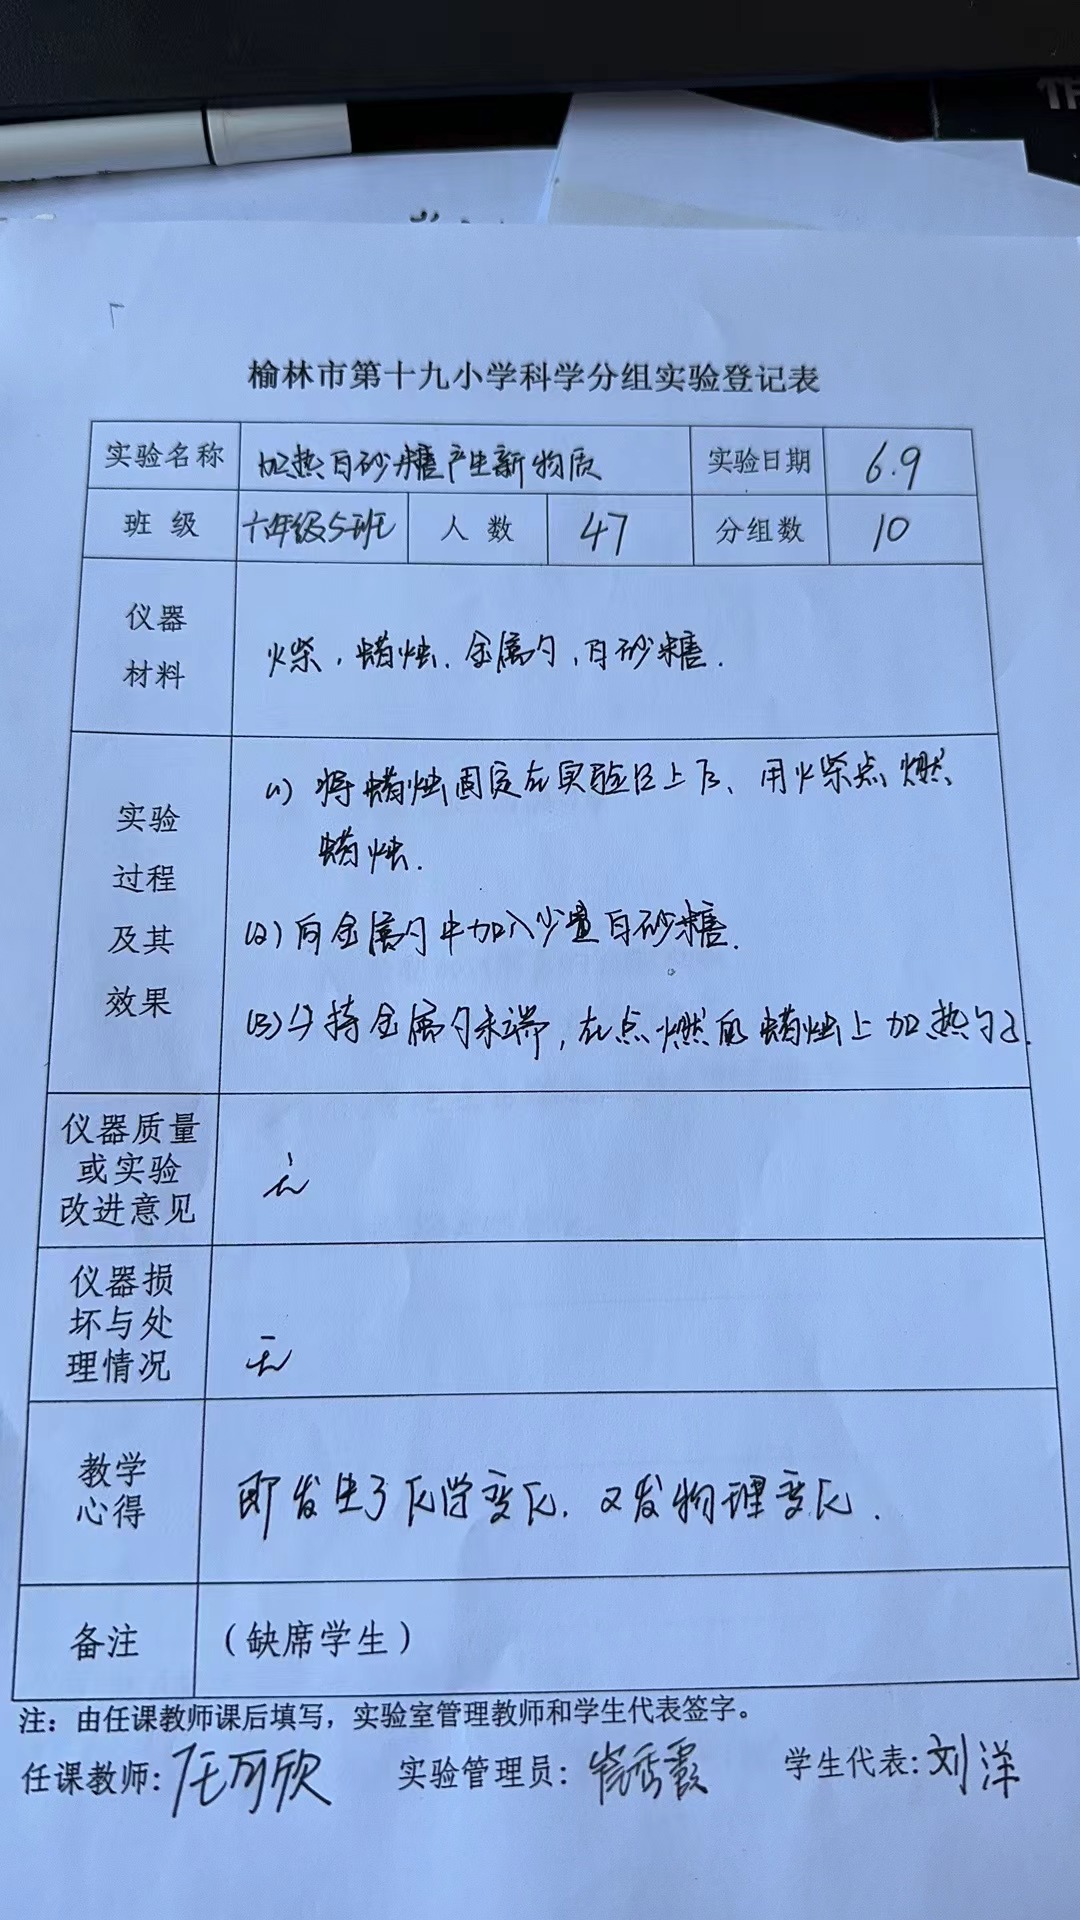 榆林市第十九小学科学分组实验登记表
实验名称 加热白砂糖产生新物质 实验日期 6.9
班级 六年级5班 人数 47 分组数 10
仪器
材料
火柴，蜡烛、金属勺，白砂糖.
实验
过程
及其
效果
(1) 将蜡烛固定在实验区上方、用火柴点燃
蜡烛.
(2) 向金属勺中加入少量白砂糖.
(3) 手持金属勺末端，在点燃的蜡烛上加热勺子.
仪器质量
或实验
改进意见
无
仪器损
坏与处
理情况
无
教学
心得
即发生了化学变化，又发物理变化.
备注 （缺席学生）
注：由任课教师课后填写，实验室管理教师和学生代表签字。
任课教师: 实验管理员: 学生代表: 刘洋